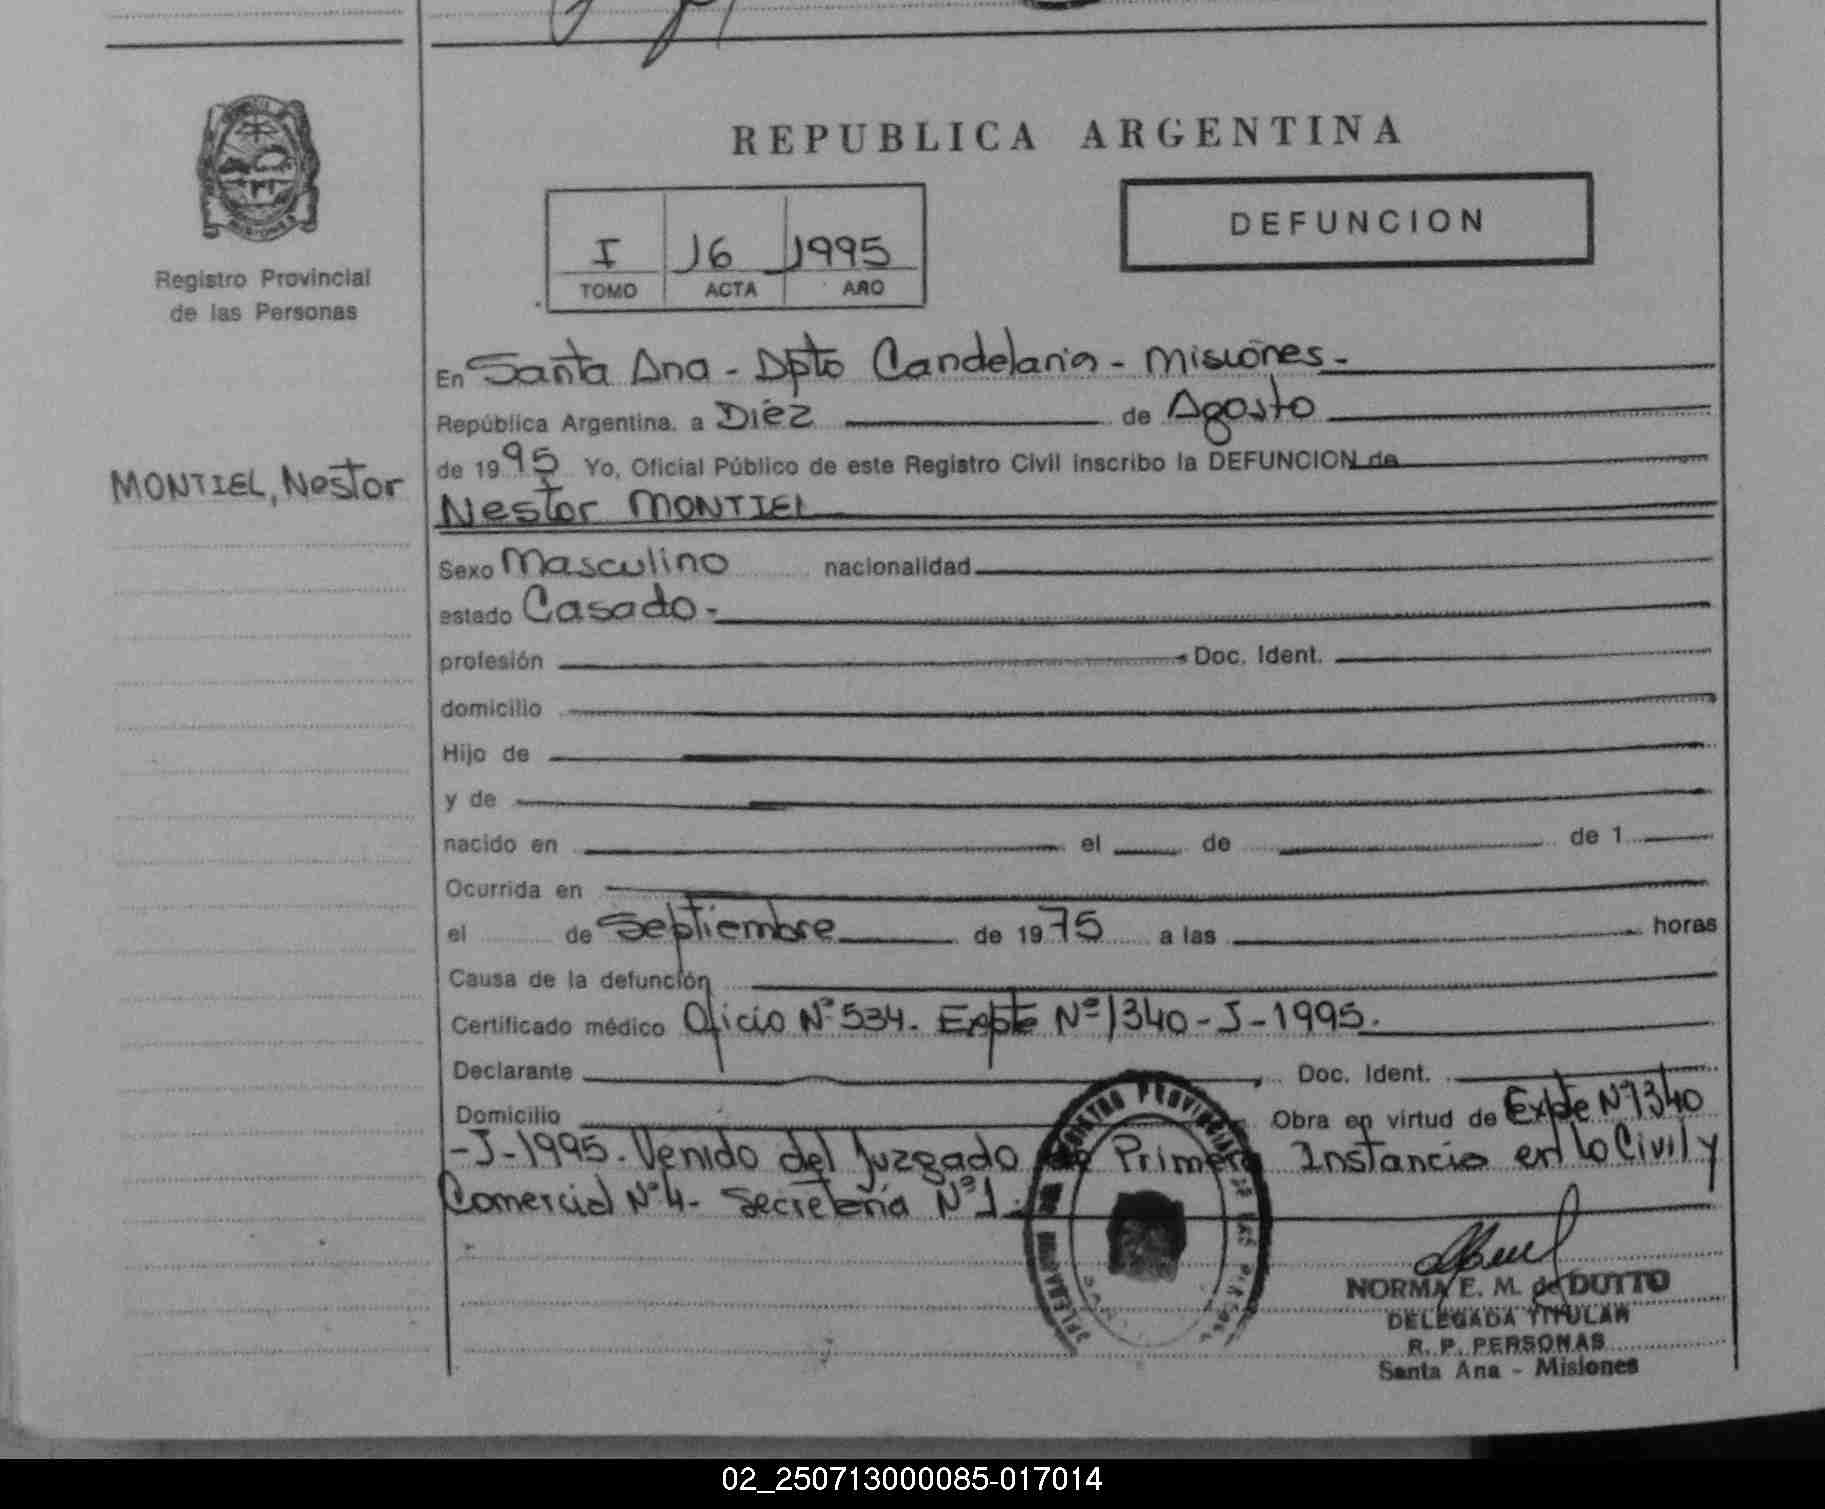 REPUBLICA ARGENTINA
DEFUNCION
I 16 1995
TOMO ACTA AÑO
Registro Provincial
de las Personas
MONTIEL, Nestor
En Santa Ana - Dpto Candelaria - Misiones -
República Argentina, a Diez de Agosto
de 1995 Yo, Oficial Público de este Registro Civil inscribo la DEFUNCION de
Nestor MONTIEL
Sexo Masculino nacionalidad
estado Casado -
profesión Doc. Ident.
domicilio
Hijo de
y de
nacido en el de de 1
Ocurrida en
el de Septiembre de 1975 a las horas
Causa de la defunción
Certificado médico Oficio Nº 534. Expte Nº 1340 - J - 1995.
Declarante Doc. Ident.
Domicilio Obra en virtud de Expte Nº 1340
- J - 1995. Venido del Juzgado de Primera Instancia en lo Civil y
Comercial Nº 4 - Secretaria Nº 1.
REGISTRO PROVINCIAL DE LAS PERSONAS
NORMA E. M. de DUTTO
DELEGADA TITULAR
R. P. PERSONAS
Santa Ana - Misiones
02_250713000085-017014